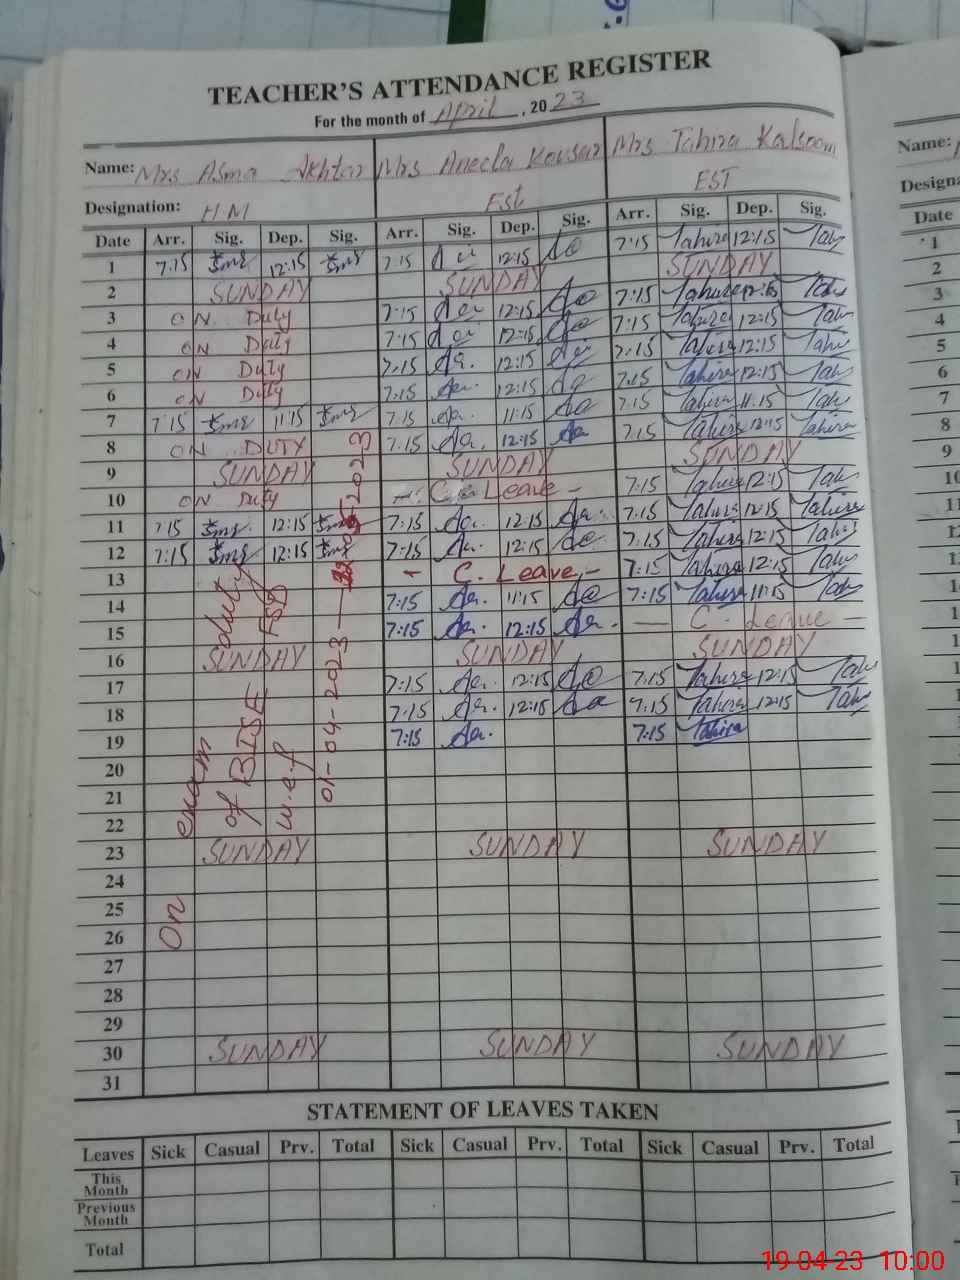 TEACHER'S ATTENDANCE REGISTER
For the month of April, 2023
Name: Mrs Asma Akhtar Mrs Aneela Kousar Mrs Tahira Kalsoom
Designation: HM Est EST
Date Arr. Sig. Dep. Sig. Arr. Sig. Dep. Sig. Arr. Sig. Dep. Sig.
1 7:15 12:15 7:15 12:15 7:15 Tahira 12:15 Tah
2 SUNDAY SUNDAY SUNDAY
3 ON Duty 7:15 12:15 7:15 Tahira 12:15 Tah
4 ON Duty 7:15 12:15 7:15 Tahira 12:15 Tah
5 ON Duty 7:15 12:15 7:15 Tahira 12:15 Tah
6 ON Duty 7:15 12:15 7:15 Tahira 12:15 Tah
7 7:15 11:15 7:15 11:15 7:15 Tahira 11:15 Tah
8 ON DUTY 7:15 12:15 7:15 Tahira 12:15 Tahira
9 SUNDAY SUNDAY SUNDAY
10 ON Duty - C. Leave - 7:15 Tahira 12:15 Tah
11 7:15 12:15 7:15 12:15 7:15 Tahira 12:15 Tahira
12 7:15 12:15 7:15 12:15 7:15 Tahira 12:15 Tah
13 - C. Leave - 7:15 Tahira 12:15 Tah
14 7:15 11:15 7:15 Tahira 11:15 Tah
15 7:15 12:15 — C. Leave —
16 SUNDAY SUNDAY SUNDAY
17 7:15 12:15 7:15 Tahira 12:15 Tah
18 7:15 12:15 7:15 Tahira 12:15 Tah
19 7:15 7:15 Tahira
20
21
22
23 SUNDAY SUNDAY SUNDAY
24
25
26
27
28
29
30 SUNDAY SUNDAY SUNDAY
31
On exam duty
of BISE FSD
w.e.f
01-04-2023
STATEMENT OF LEAVES TAKEN
Leaves Sick Casual Prv. Total Sick Casual Prv. Total Sick Casual Prv. Total
This Month
Previous Month
Total
Name:
Date
1
2
3
4
5
6
7
8
9
19-04-23 10:00